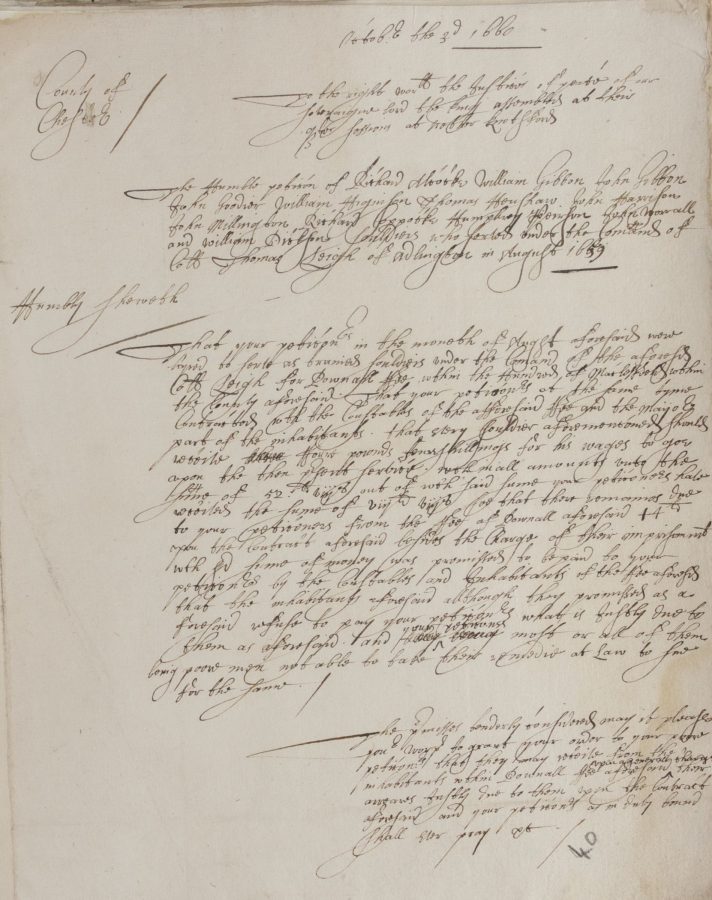 October the 3d 1660
County of
Chester
To the right worll the Justices of peace of our
soveraigne lord the king assembled at their
sessions at Nether Knutsford
The Humble peticion of Richard William Gibbon John Gibbon
John Goodier William Higinson Thomas Henshaw John Harrison
John Millington Richard Humphrey John Worrall
and William Souldiers who served under the Comand of
Coll Thomas Leigh of Adlington in August 1659
Humbly Sheweth
That your peticonrs in the moneth of August aforesaid were
hyred to serve as trained souldiers under the Comand of the aforesd
Coll Leigh for Downall Fee within the Hundred of Macclesfield within
the County aforesaid That your peticoners at the same tyme
Contracted with the Constables of the afforesaid Fee and the Major
part of the inhabitants that every souldier aforementioned should
receive foure pounds foure shillings for his wages to goe
upon the then present service which all amounts unto the
sume of 52li out of wch said sume your peticioners have
received the sume of viijs soe that there remaines due
to your peticioners from the Fee of Downall aforesaid
upon the Contract aforesaid besides the Charge of their imprisonmt
wch sd sume of money was promissed to be paid to your
peticonrs by the Constables and Inhabitants of the Fee aforesd
that the inhabitants aforesaid although they promised as a
foresaid refuse to pay your peticionrs what is Justly due to
them as aforesaid and your peticonrs most or all of them
being poore men not able to take their remedie at Law to sue
for the same
The premisses tenderly considered may it please
your worps to grant your order to your poore
peticonrs that they may receive from the
inhabitants within Downall Fee aforesaid their
arreares Justly due to them upon the Contract
aforesaid and your peticonrs as in duty bound
shall ever pray &c
40